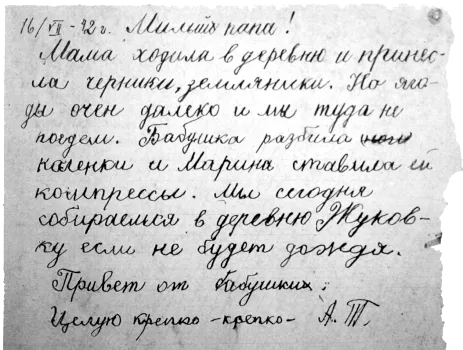 16/VII-42 г. Милый папа!
Мама ходила в деревню и принес-
ла черники, земляники. Но яго-
ды очен далеко и мы туда не
поедем. Бабушка разбила
коленки и Марина ставила ей
компрессы. Мы сегодня
собираемься в деревню Жуков-
ку если не будет дождя.
Привет от бабушки.
Целую крепко-крепко- А.Т.